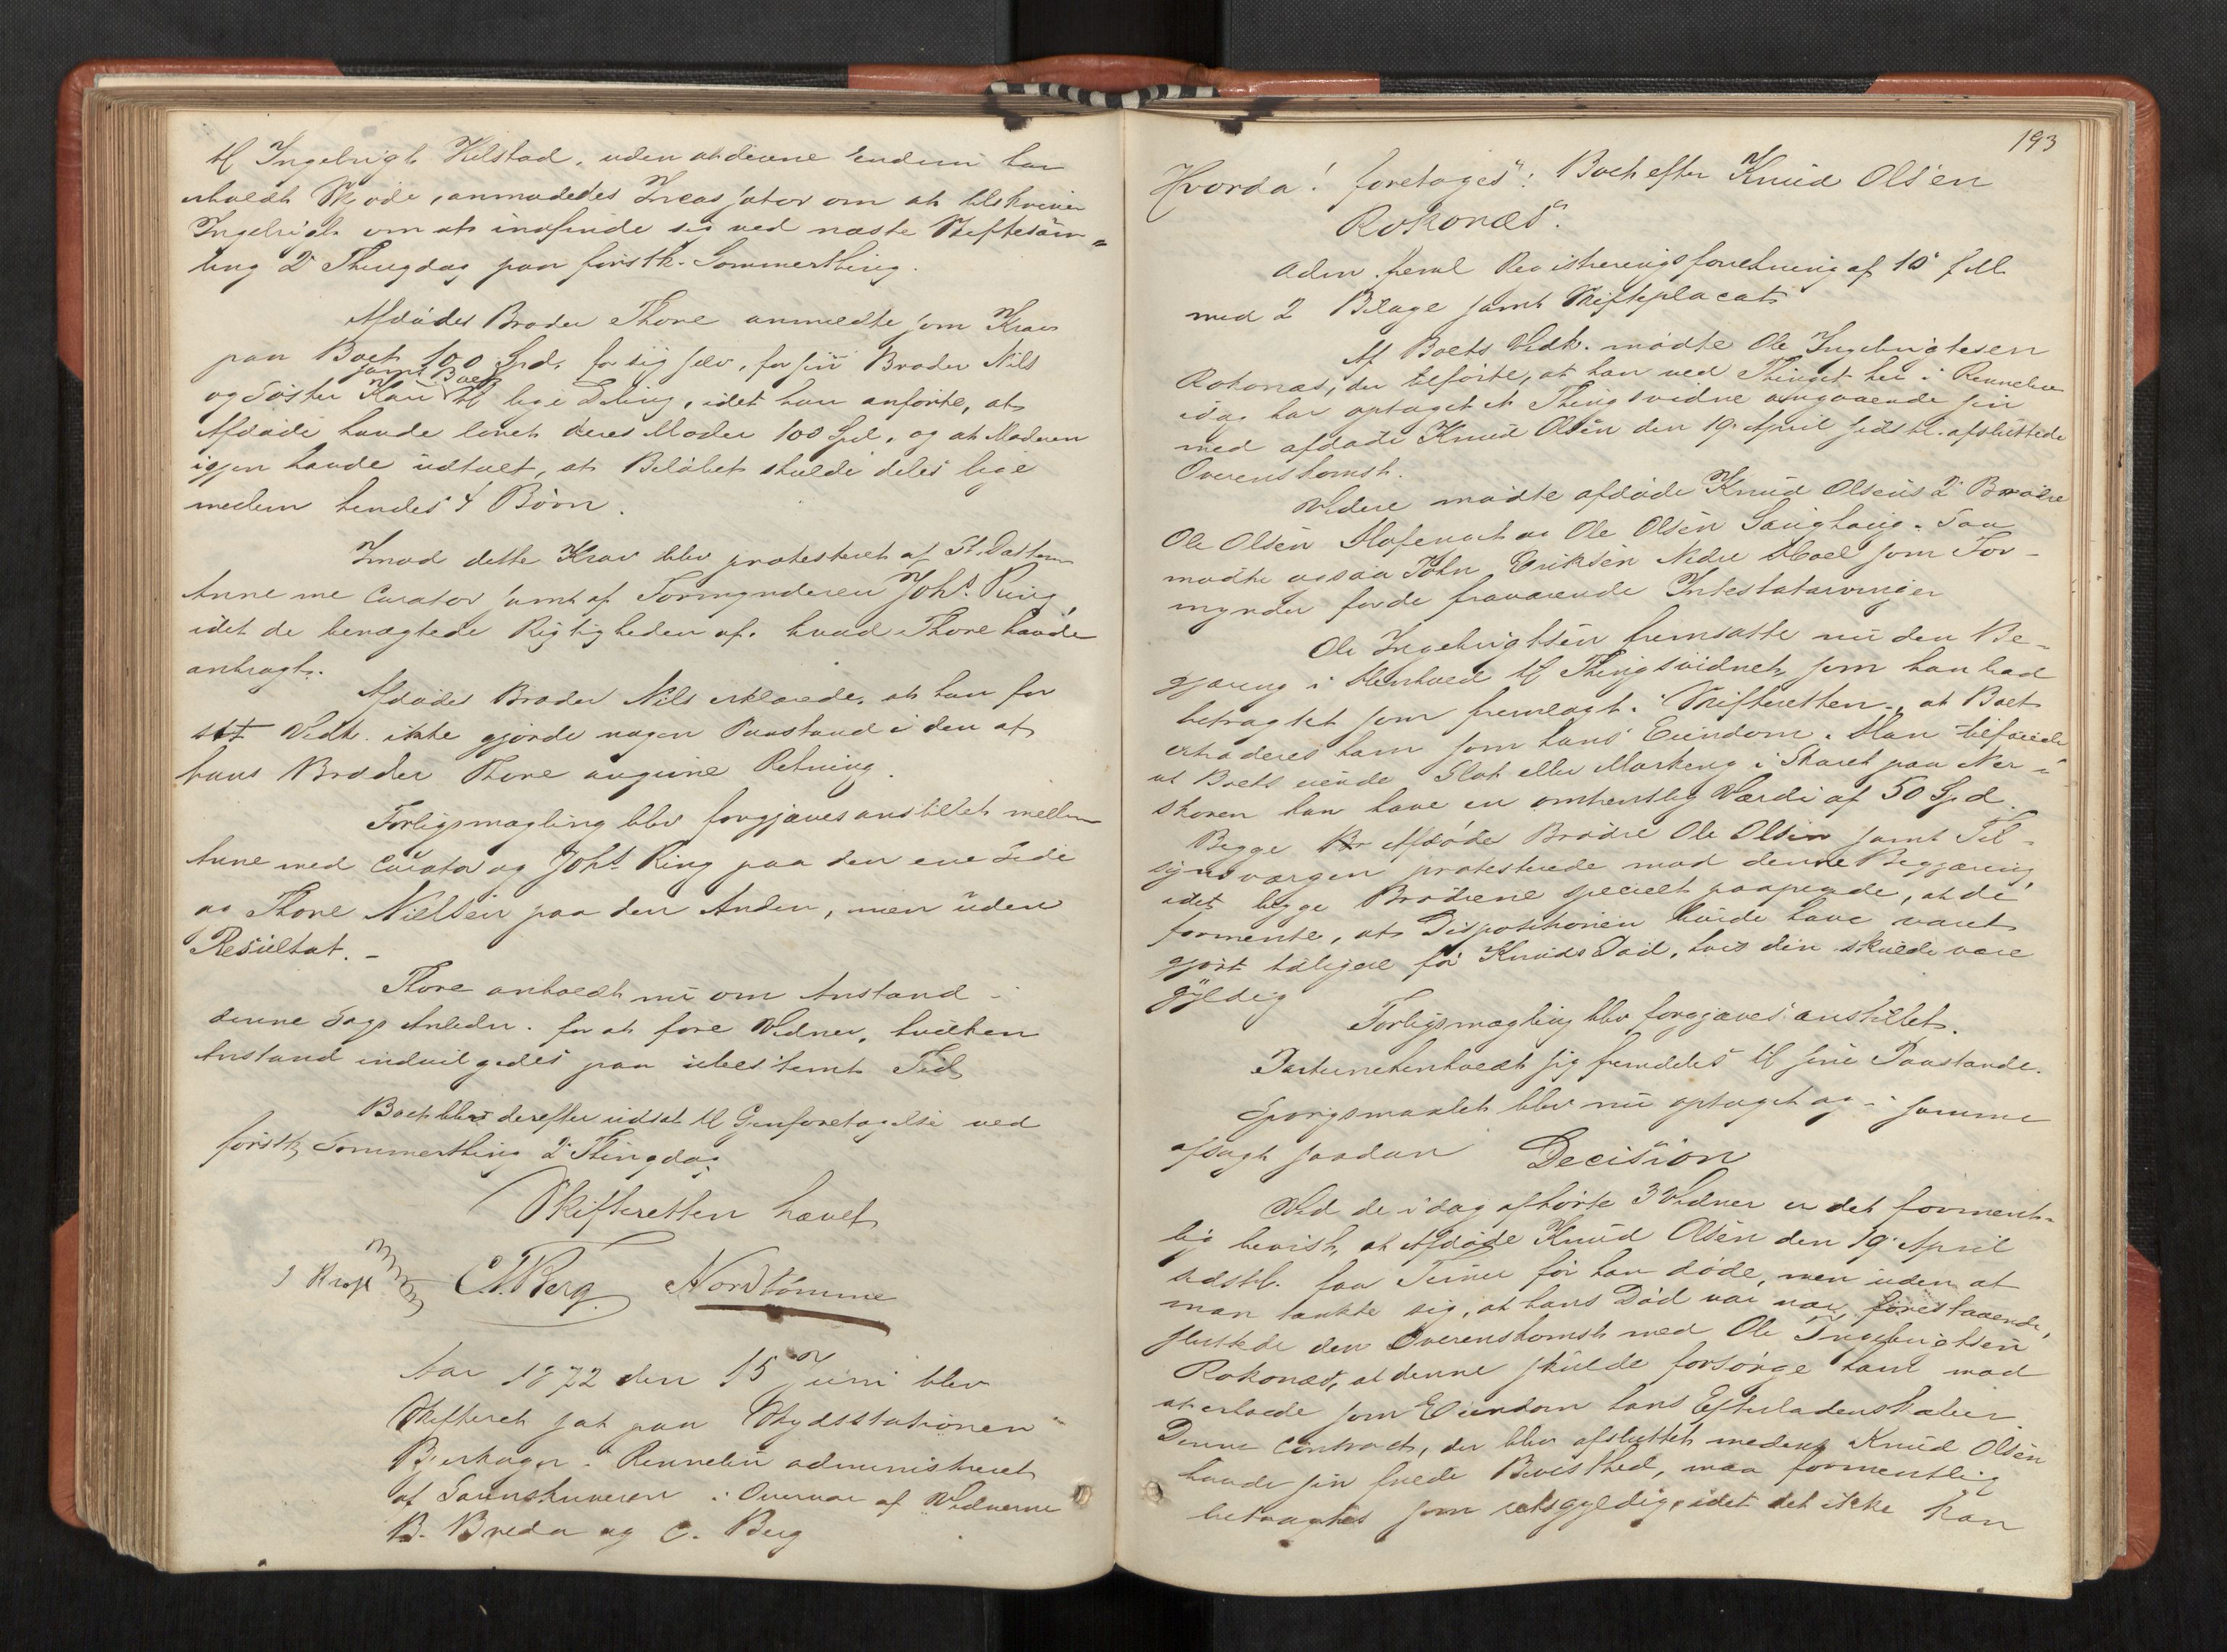 til Ingebrigt Hilstad, uden at denne endnu har
erholdt Skjøde, anmodedes Incassator om at tilskrive
Ingebrigt om at indfinde sig ved næste Skiftesam=
ling 2d Thingdag paa førstk. Sommerthing.
Afdødes Broder Thore anmeldte som Krav
paa Boet 100 Spd. for sig selv, for sin Broder Nils
samt Boet
og Søster Kari til lige Deling, idet han anførte, at
Afdøde havde laant deres Moder 100 Spd, og at Moderen
igjen havde udtalt, at Beløbet skulde deles lige
mellem hendes 4 Børn.
Imod dette Krav blev protesteret af
Anne me Curator samt af Formynderen Johs. Ring,
idet de benægtede Rigtigheden af, hvad Thore havde
anbragt.
Afdødes Broder Nils erklærede, at han for
sit Vedk. ikke gjorde nogen Paastand i den af
hans Broder Thore angivne Retning.
Forligsmægling blev forgjæves anstillet mellem
Anne med Curator og Johs. Ring paa den ene Side
og Thore Nielsen paa den Anden, men uden
Resultat. -
Thore anholdt nu om Anstand i
denne Sags Anledn. for at føre Vidner, hvilken
Anstand indvilgedes paa ubestemt Tid.
Boet blev derefter udsat til Gjenforetagelse ved
førstk Sommerthing 2d Thingdag.
Skifteretten hævet
C. T. Berg. Nordtømme
Aar 1872 den 15 Juni blev
Skifteret sat paa Skydsstationen
Bjerkager i Rennebu administreret
af Sorenskriveren i Overvær af Vidnerne
B. Breda og C. Berg
193
Hvorda! foretoges: Boet efter Knud Olsen
Rokonæs.
Adm. freml Registreringsforretning af 10 f M
med 2 Bilage samt Skifteplacat
Af Boets Vedk. mødte Ole Ingebrigtsen
Rokonæs, der tilførte, at han ved Thinget her i Rennebu
idag har optaget et Thingsvidne angaaende sin
med afdøde Knud Olsen den 19. April sidstl. afsluttede
Overenskomst.
Videre mødte afdøde Knud Olsens 2 Brødre
Ole Olsen og Ole Olsen Saughaug. Saa
mødte ogsaa John Eriksen Nedre Hoel som For-
mynder for de fraværende Intestatarvinger
Ole Ingebrigtsen fremsatte nu den Be-
gjæring i Henhold til Thingsvidnet, som han bad
betragtet som fremlagt i Skifteretten, at Boet
extraderes ham som hans Eiendom. Han tilføiede
at Boets eiende Slot eller Markeng i Skaret paa Ner-
skoven kan have en omtrentlig Værdi af 50 Spd.
Begge Br Afdødes Brødre Ole Olsen samt Til-
synsværgen protesterede mod denne Begjæring,
idet begge Brødrene specielt paapegede, at de
formente, at Dispositionen burde have været
gjort tidligere før Knuds Død, hvis den skulde være
gyldig
Forligsmægling blev forgjæves anstillet.
Parterne henholdt sig fremdeles til sine Paastande.
Spørgsmaalet blev nu optaget og i samme
afsagt saadan Decision
Ved de i dag afhørte 3 Vidner er det forment-
lig bevist, at Afdøde Knud Olsen den 19 April
sidstl. faa Timer før han døde, men uden at
man tænkte sig, at hans Død var nær forestaaende,
sluttede den Overenskomst med Ole Ingebrigtsen
Rokonæs, at denne skulde forsørge ham mod
at erholde som Eiendom hans Efterladenskaber.
Denne Contract, der blev afsluttet medens Knud Olsen
havde sin fulde Bevisthed, maa formentlig
betragtes som retsgyldig, idet det ikke kan